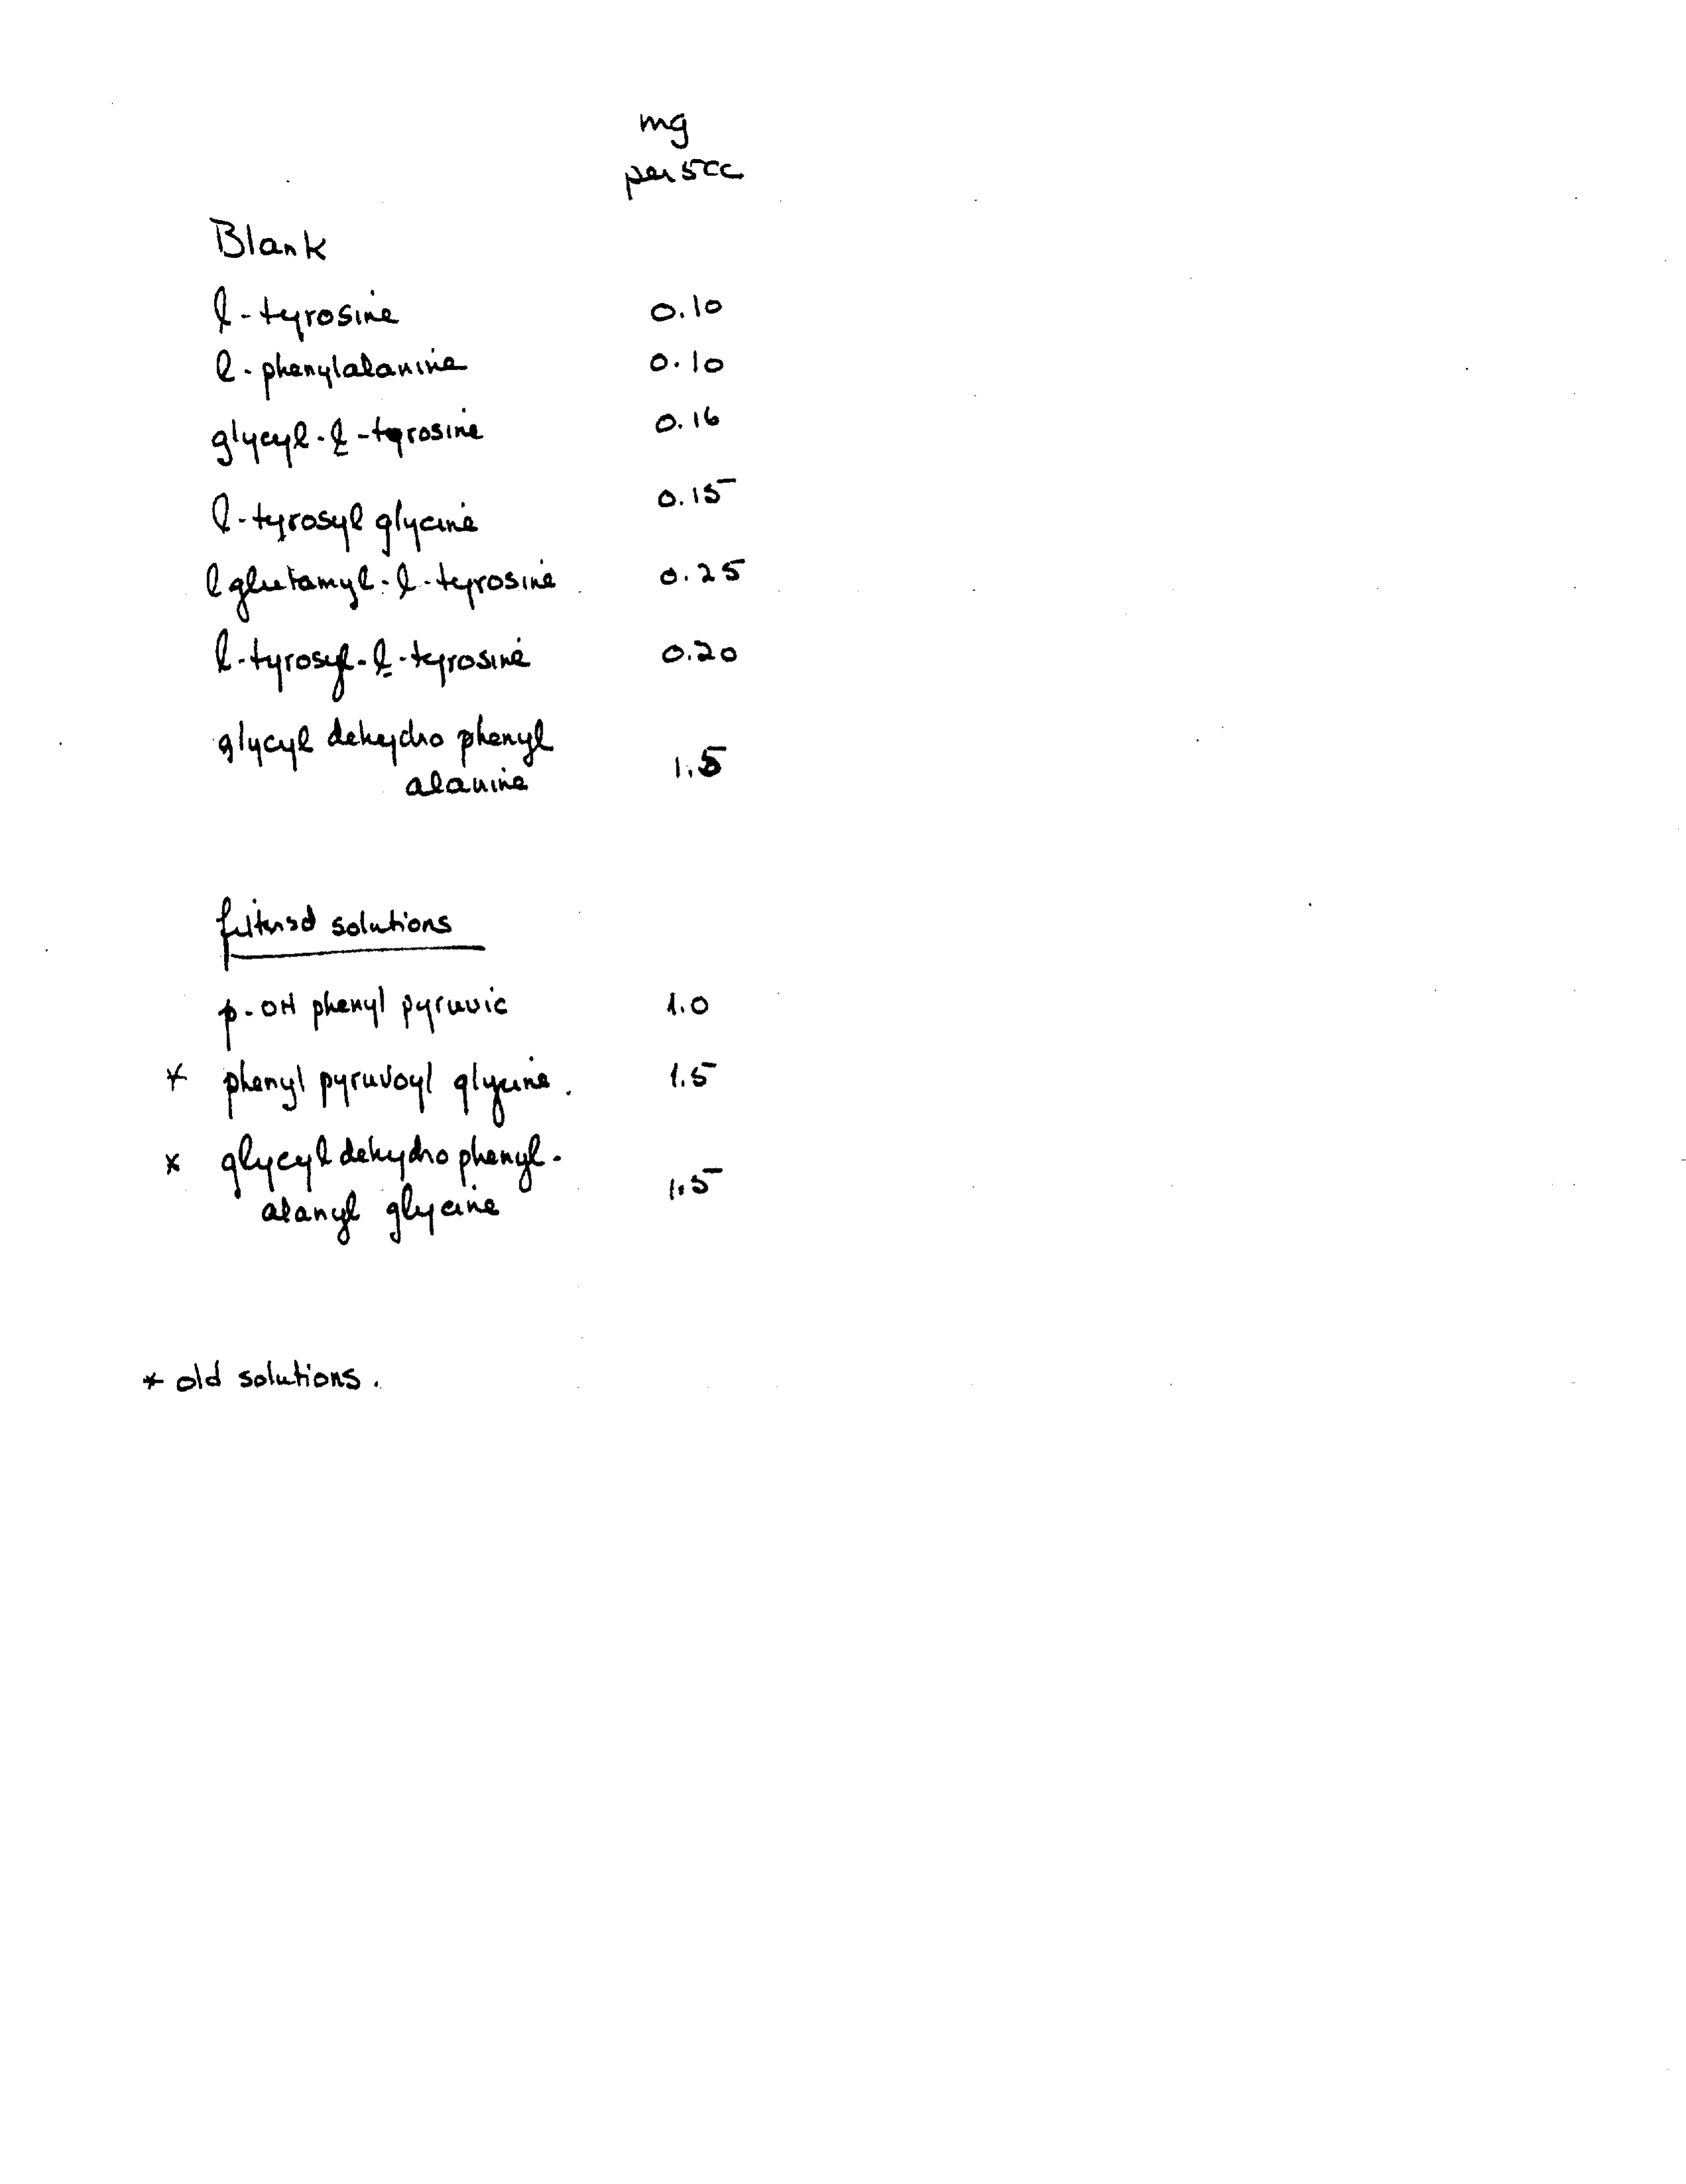 mg
per 5cc
Blank
l-tyrosine 0.10
l-phenylalanine 0.10
glycyl-l-tyrosine 0.16
l-tyrosyl glycine 0.15
l glutamyl-l-tyrosine 0.25
l-tyrosyl-l-tyrosine 0.20
glycyl dehydro phenyl
alanine 1.5
filtered solutions
p-OH phenyl pyruvic 1.0
* phenyl pyruvoyl glycine. 1.5
* glycyl dehydro phenyl-
alanyl glycine 1.5
* old solutions.